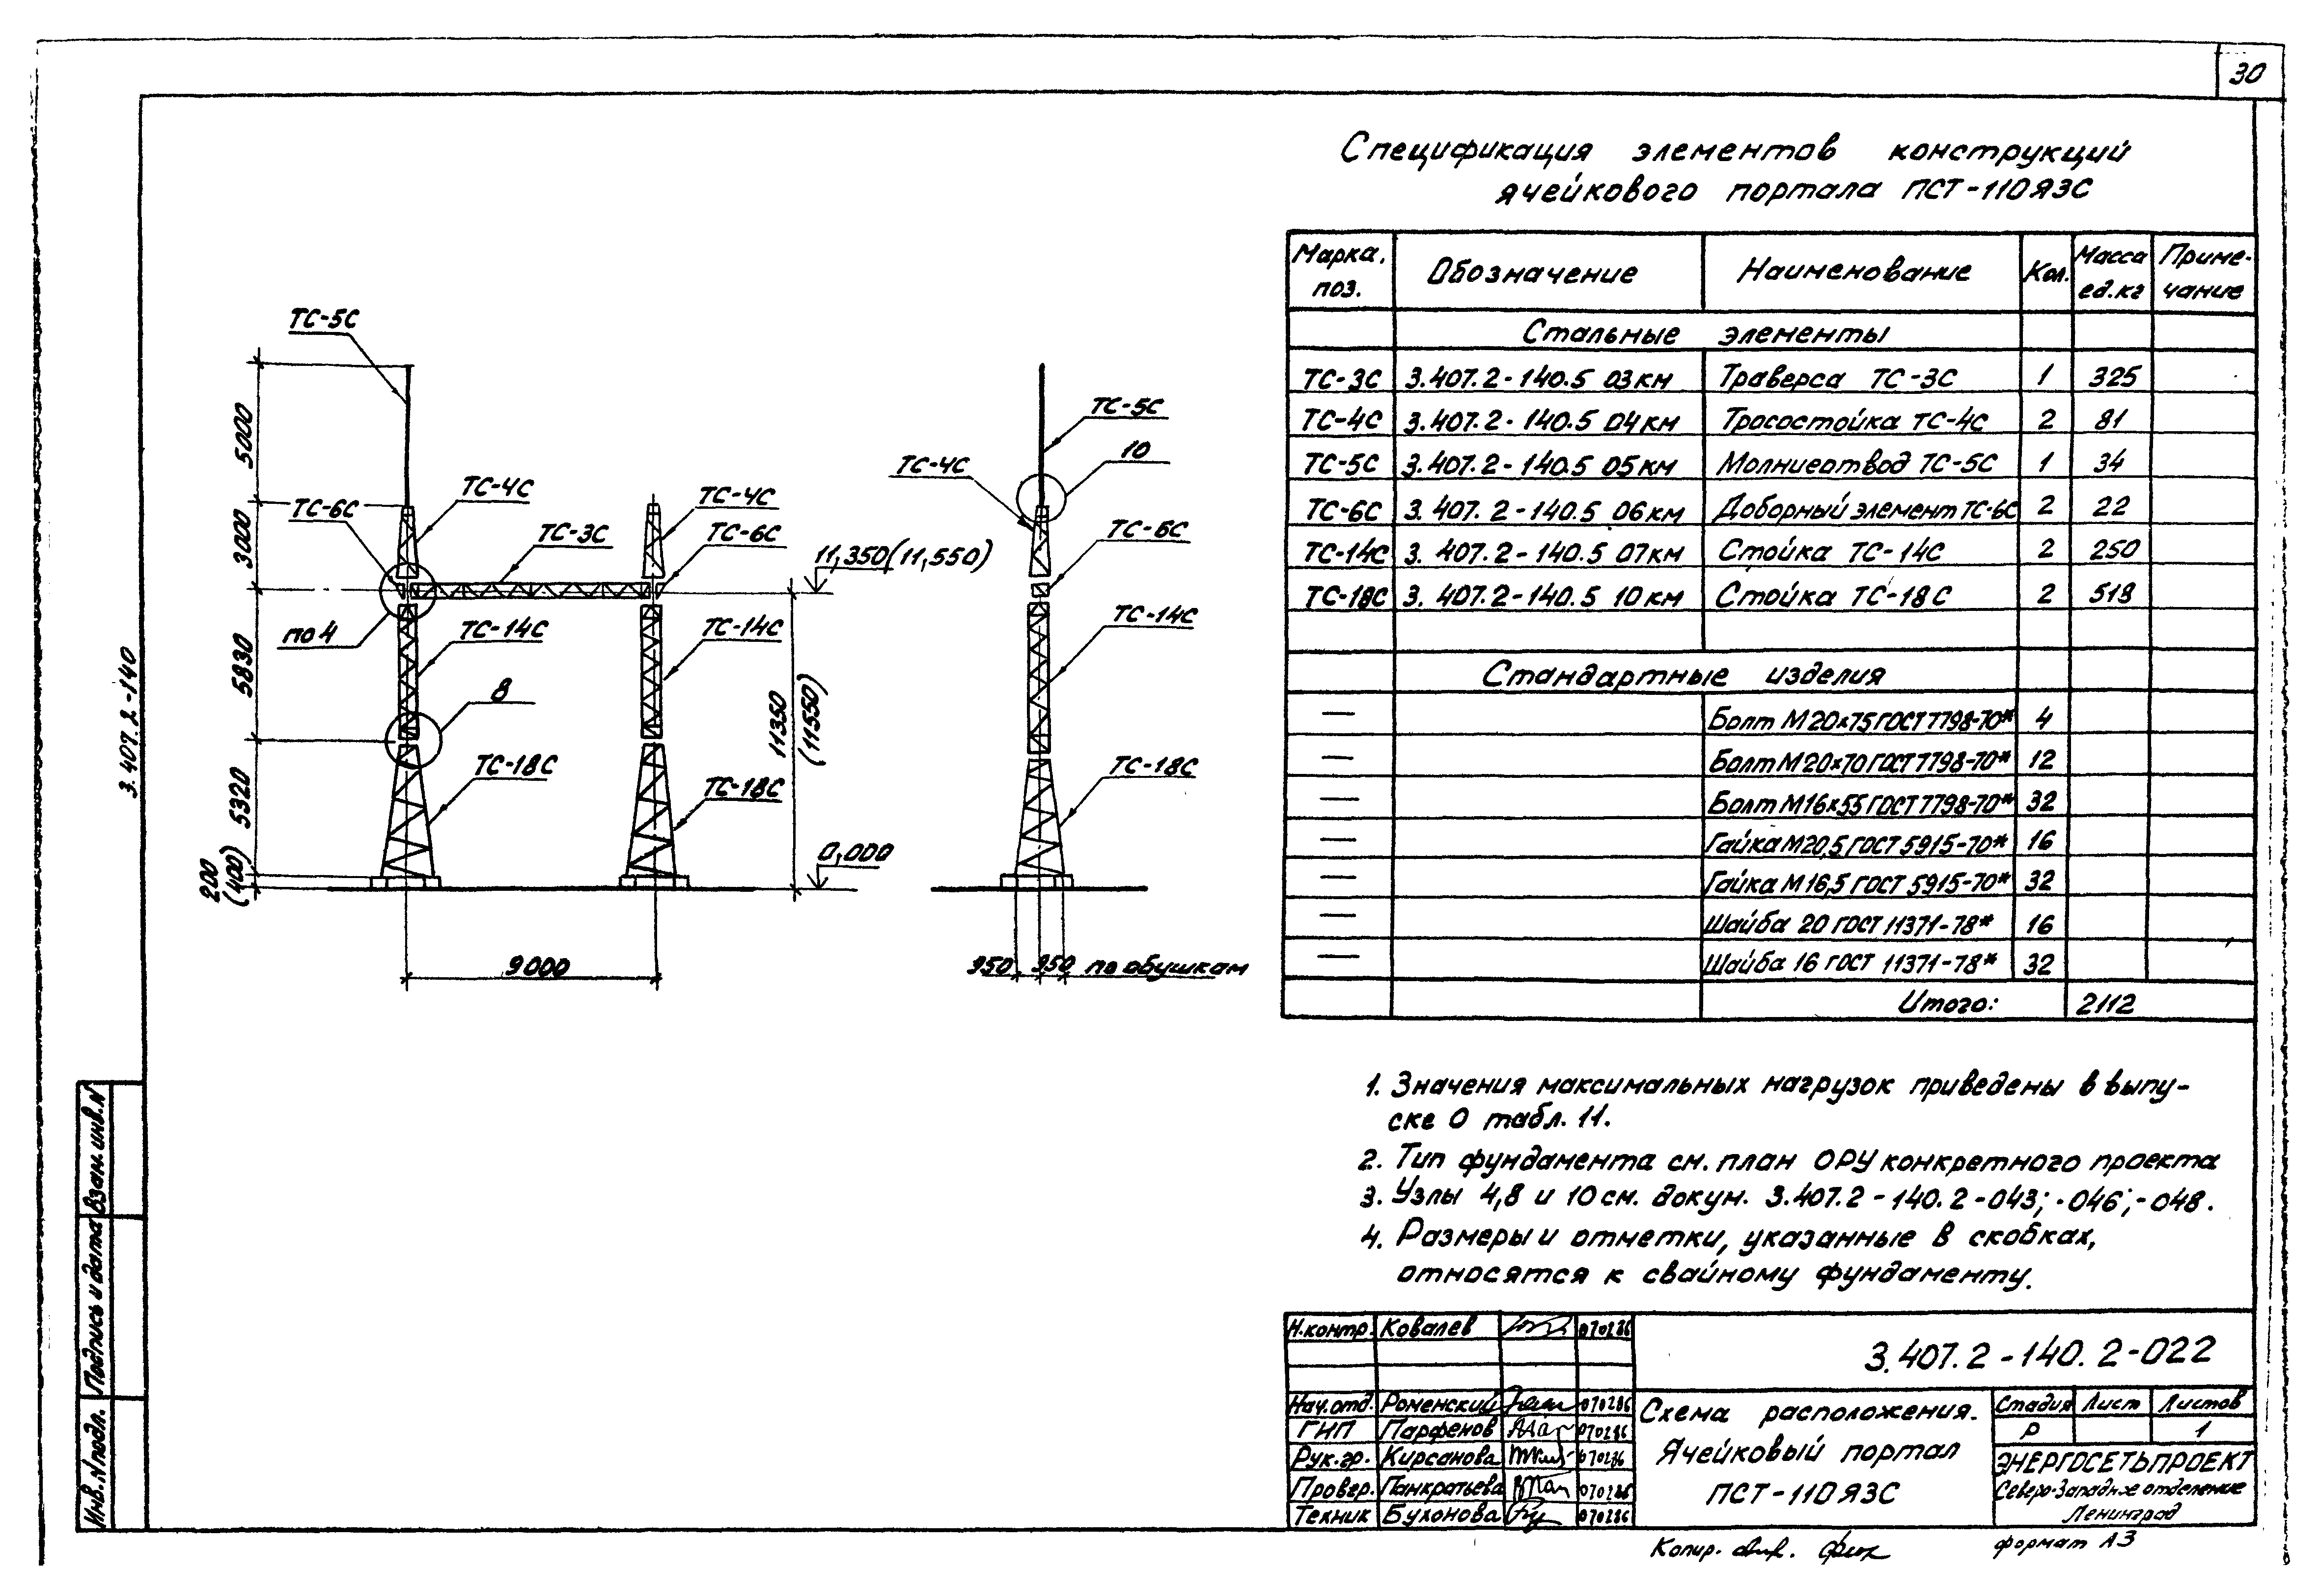 30
Спецификация элементов конструкций
ячейкового портала ПСТ-110ЯЗС
Марка, поз. Обозначение Наименование Кол. Масса ед.кг Приме-чание
Стальные элементы
ТС-3С 3.407.2-140.5 03км Траверса ТС-3С 1 325
ТС-4С 3.407.2-140.5 04км Тросостойка ТС-4С 2 81
ТС-5С 3.407.2-140.5 05км Молниеотвод ТС-5С 1 34
ТС-6С 3.407.2-140.5 06км Доборный элемент ТС-6С 2 22
ТС-14С 3.407.2-140.5 07км Стойка ТС-14С 2 250
ТС-18С 3.407.2-140.5 10км Стойка ТС-18С 2 518
Стандартные изделия
— Болт М20х75 ГОСТ 7798-70* 4
— Болт М20х70 ГОСТ 7798-70* 12
— Болт М16х55 ГОСТ 7798-70* 32
— Гайка М20,5 ГОСТ 5915-70* 16
— Гайка М16,5 ГОСТ 5915-70* 32
— Шайба 20 ГОСТ 11371-78* 16
— Шайба 16 ГОСТ 11371-78* 32
Итого: 2112
ТС-5С
5000
ТС-4С
ТС-4С
ТС-6С
ТС-3С
ТС-6С
3000
11,350(11,550)
по 4
ТС-14С
ТС-14С
5830
8
11350
(11550)
ТС-18С
ТС-18С
5320
0,000
200
(400)
9000
ТС-5С
10
ТС-4С
ТС-6С
ТС-14С
ТС-18С
950 950 по обушкам
3.407.2-140
1. Значения максимальных нагрузок приведены в выпу-
ске 0 табл. 11.
2. Тип фундамента см. план ОРУ конкретного проекта
3. Узлы 4,8 и 10 см. докум. 3.407.2-140.2-043; -046; -048.
4. Размеры и отметки, указанные в скобках,
относятся к свайному фундаменту.
Взам. инв. N
Подпись и дата
Инв. N подл.
Н.контр. Ковалев 070286
Нач.отд. Роменский 070286
ГИП Парфенов 070286
Рук.гр. Кирсанова 070286
Провер. Панкратьева 070286
Техник Бухонова 070286
3.407.2-140.2-022
Схема расположения.
Ячейковый портал
ПСТ-110ЯЗС
Стадия Лист Листов
Р 1
ЭНЕРГОСЕТЬПРОЕКТ
Северо-Западное отделение
Ленинград
Копир.
формат А3